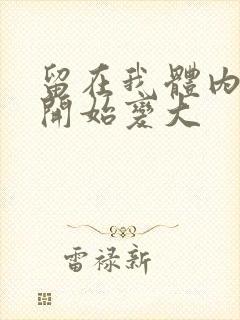 留在我體內
開始變大
雷禄新